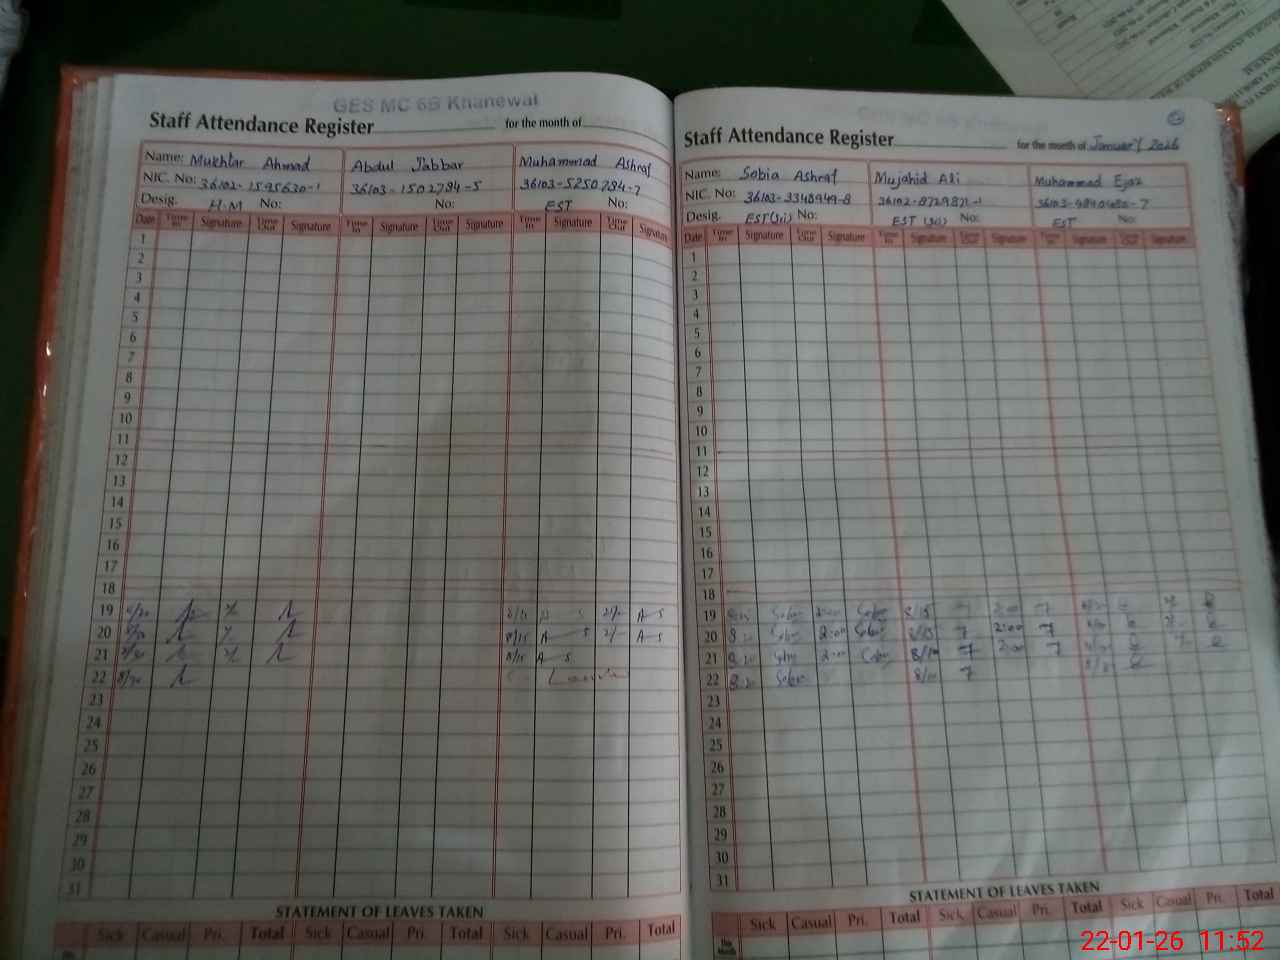 GES MC 6B Khanewal
Staff Attendance Register for the month of
Name: Mukhtar Ahmad Abdul Jabbar Muhammad Ashraf
NIC. No: 36102-1595620-1 36103-1502784-5 36103-5250784-7
Desig. H.M No: No: EST No:
Date Time In Signature Time Out Signature Time In Signature Time Out Signature Time In Signature Time Out Signature
1
2
3
4
5
6
7
8
9
10
11
12
13
14
15
16
17
18
19 8/15 A S A S
20 8/15 A S A S
21 8/15 A S
22 8/20
23
24
25
26
27
28
29
30
31
STATEMENT OF LEAVES TAKEN
Sick Casual Pri. Total Sick Casual Pri. Total Sick Casual Pri. Total
Staff Attendance Register for the month of January 2026
Name: Sobia Ashraf Mujahid Ali Muhammad Ejaz
NIC. No: 36103-3340949-8 36102-8729821-1
Desig. EST(Sci) No: EST (Sci) No: EST No:
Date Time In Signature Time Out Signature Time In Signature Time Out Signature Time In Signature Time Out Signature
1
2
3
4
5
6
7
8
9
10
11
12
13
14
15
16
17
18
19 2:00 8/15 2:00
20 2:00 8/15 2:00
21 2:00 2:00
22
23
24
25
26
27
28
29
30
31
STATEMENT OF LEAVES TAKEN
This Month Sick Casual Pri. Total Sick Casual Pri. Total Sick Casual Pri. Total
22-01-26 11:52